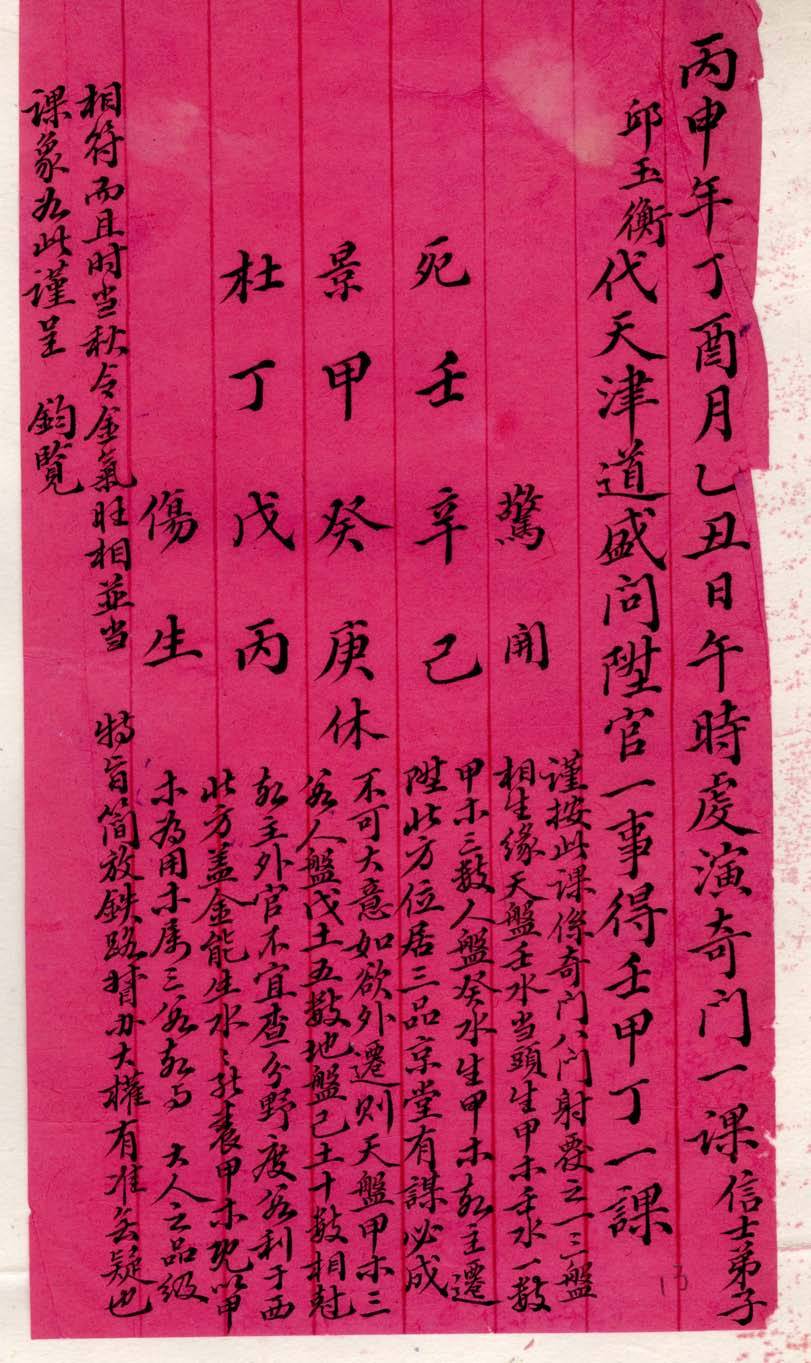 丙申年丁酉月乙丑日午時虔演奇门一课信士弟子
邱玉衡代天津道盛问陞官一事得壬甲丁一課
驚 開
死 壬 辛 己
景 甲 癸 庚 休
杜 丁 戊 丙
傷 生
谨按此课係奇门八门射覆之一三盤
相生缘天盤壬水当頭生甲木壬水一数
甲木三数人盤癸水生甲木故主遷
陞此方位居三品京堂有謀必成
不可大意如欲外遷则天盤甲木三
数人盤戊土五数地盤己土十数相尅
故主外官不宜查分野度数利于西
北方盖金能生水水能養甲木既以甲
木为用木屬三数故与 大人之品級
相符而且时当秋令金氣旺相並当 特旨简放鉄路督办大權有准无疑也
课象如此谨呈 鈞覽
13